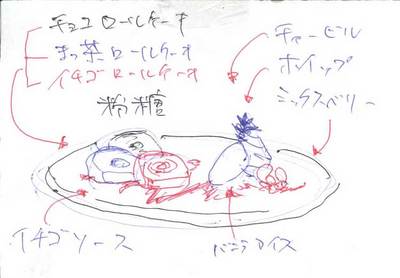 チョコロールケーキ
まっ茶ロールケーキ
イチゴロールケーキ
粉糖
チャービル
ホイップ
ミックスベリー
イチゴソース
バニラアイス